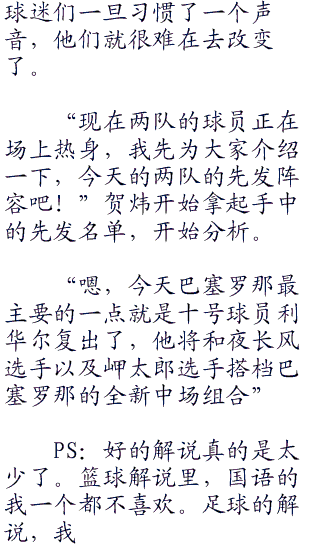 球迷们一旦习惯了一个声
音，他们就很难在去改变
了。
“现在两队的球员正在
场上热身，我先为大家介绍
一下，今天的两队的先发阵
容吧！”贺炜开始拿起手中
的先发名单，开始分析。
“嗯，今天巴塞罗那最
主要的一点就是十号球员利
华尔复出了，他将和夜长风
选手以及岬太郎选手搭档巴
塞罗那的全新中场组合”
PS：好的解说真的是太
少了。篮球解说里，国语的
我一个都不喜欢。足球的解
说，我